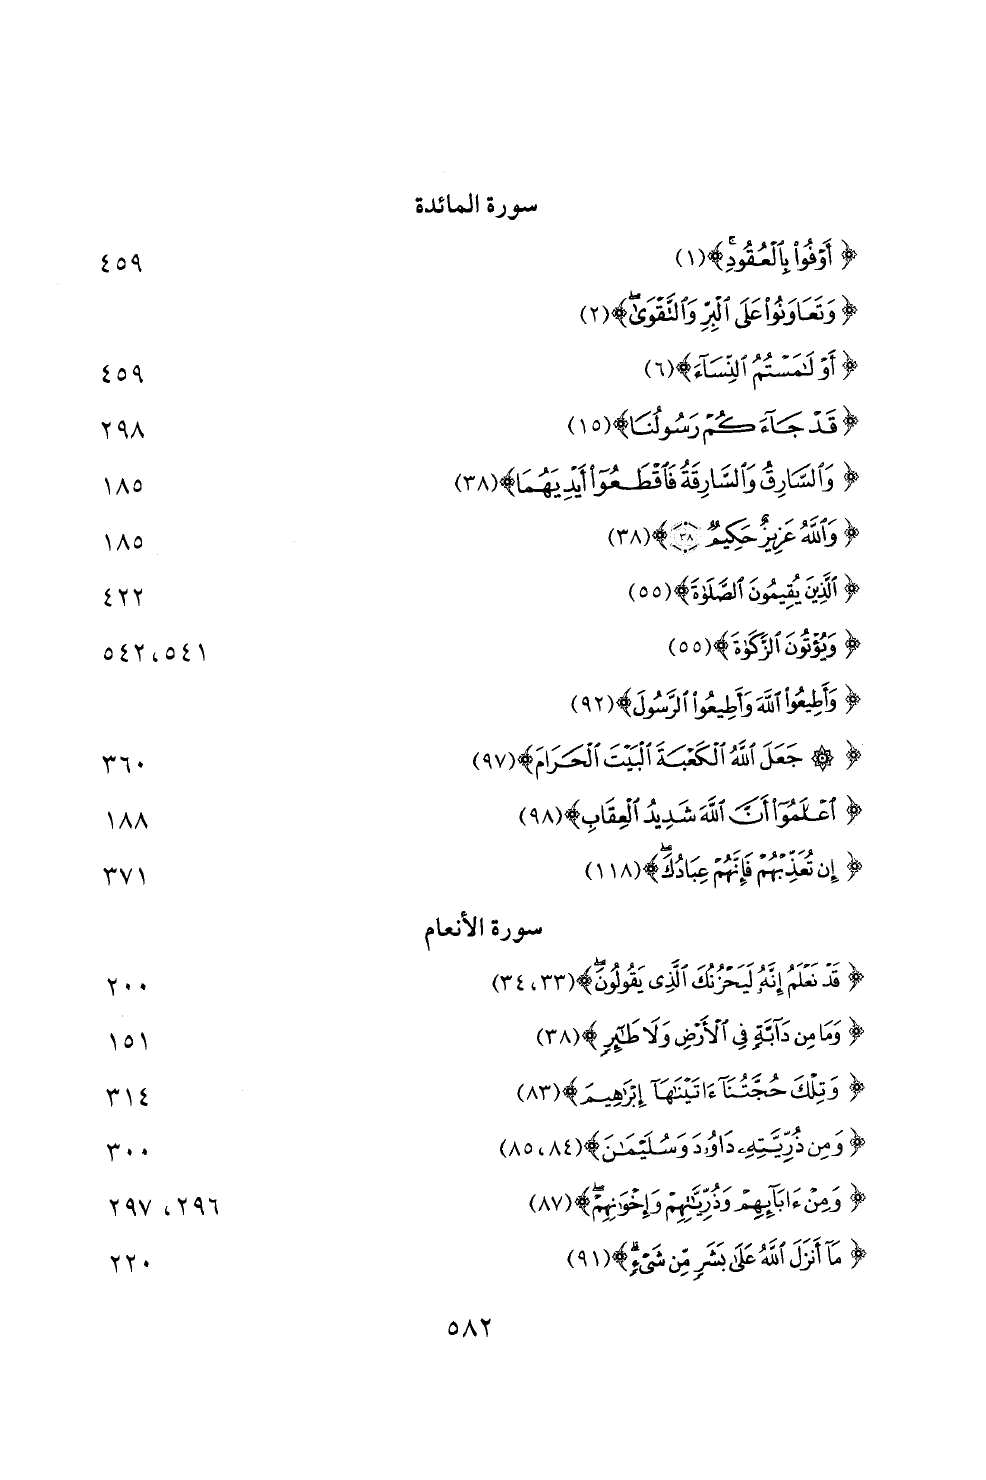 سورة المائدة
﴿ أَوْفُواْ بِٱلْعُقُودِۚ ﴾ (١) ٤٥٩
﴿ وَتَعَاوَنُواْ عَلَى ٱلْبِرِّ وَٱلتَّقْوَىٰۖ ﴾ (٢)
﴿ أَوْ لَٰمَسْتُمُ ٱلنِّسَآءَ ﴾ (٦) ٤٥٩
﴿ قَدْ جَآءَكُمْ رَسُولُنَا ﴾ (١٥) ٢٩٨
﴿ وَٱلسَّارِقُ وَٱلسَّارِقَةُ فَٱقْطَعُوٓاْ أَيْدِيَهُمَا ﴾ (٣٨) ١٨٥
﴿ وَٱللَّهُ عَزِيزٌ حَكِيمٌ ٣٨ ﴾ (٣٨) ١٨٥
﴿ ٱلَّذِينَ يُقِيمُونَ ٱلصَّلَوٰةَ ﴾ (٥٥) ٤٢٢
﴿ وَيُؤْتُونَ ٱلزَّكَوٰةَ ﴾ (٥٥) ٥٤١، ٥٤٢
﴿ وَأَطِيعُواْ ٱللَّهَ وَأَطِيعُواْ ٱلرَّسُولَ ﴾ (٩٢)
﴿ ۞ جَعَلَ ٱللَّهُ ٱلْكَعْبَةَ ٱلْبَيْتَ ٱلْحَرَامَ ﴾ (٩٧) ٣٦٠
﴿ ٱعْلَمُوٓاْ أَنَّ ٱللَّهَ شَدِيدُ ٱلْعِقَابِ ﴾ (٩٨) ١٨٨
﴿ إِن تُعَذِّبْهُمْ فَإِنَّهُمْ عِبَادُكَۖ ﴾ (١١٨) ٣٧١
سورة الأنعام
﴿ قَدْ نَعْلَمُ إِنَّهُۥ لَيَحْزُنُكَ ٱلَّذِى يَقُولُونَۖ ﴾ (٣٣، ٣٤) ٢٠٠
﴿ وَمَا مِن دَآبَّةٍ فِى ٱلْأَرْضِ وَلَا طَٰٓئِرٍ ﴾ (٣٨) ١٥١
﴿ وَتِلْكَ حُجَّتُنَآ ءَاتَيْنَٰهَآ إِبْرَٰهِيمَ ﴾ (٨٣) ٣١٤
﴿ وَمِن ذُرِّيَّتِهِۦ دَاوُۥدَ وَسُلَيْمَٰنَ ﴾ (٨٤، ٨٥) ٣٠٠
﴿ وَمِنْ ءَابَآئِهِمْ وَذُرِّيَّٰتِهِمْ وَإِخْوَٰنِهِمْۖ ﴾ (٨٧) ٢٩٦، ٢٩٧
﴿ مَآ أَنزَلَ ٱللَّهُ عَلَىٰ بَشَرٍ مِّن شَىْءٍۗ ﴾ (٩١) ٢٢٠
٥٨٢